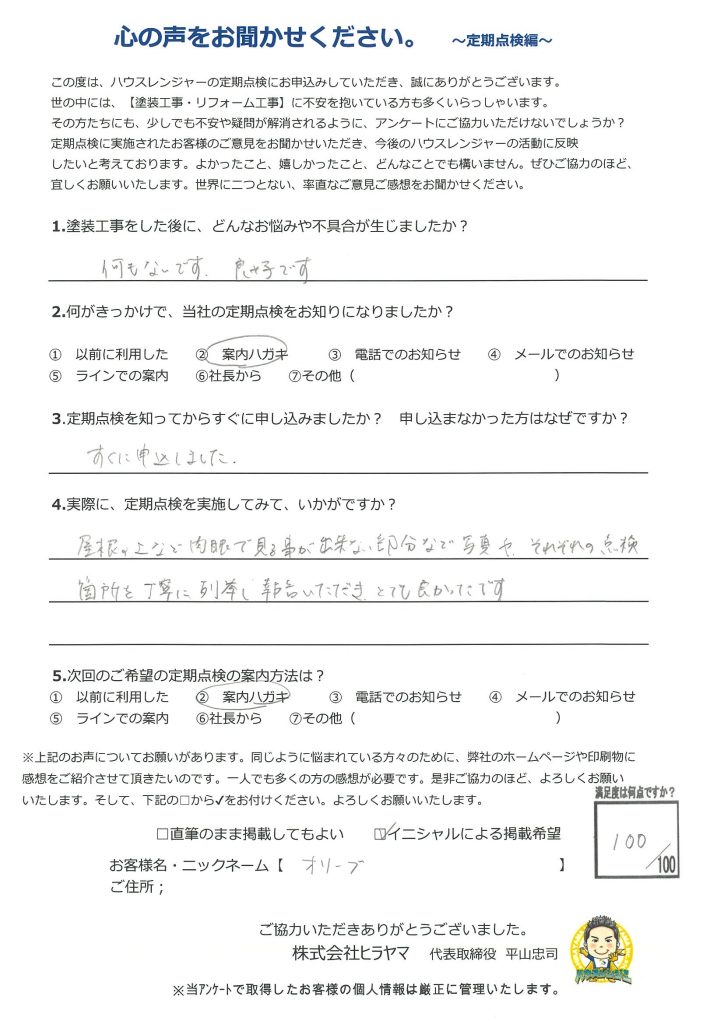 心の声をお聞かせください。 ～定期点検編～
この度は、ハウスレンジャーの定期点検にお申込みしていただき、誠にありがとうございます。
世の中には、【塗装工事・リフォーム工事】に不安を抱いている方も多くいらっしゃいます。
その方たちにも、少しでも不安や疑問が解消されるように、アンケートにご協力いただけないでしょうか？
定期点検に実施されたお客様のご意見をお聞かせいただき、今後のハウスレンジャーの活動に反映
したいと考えております。よかったこと、嬉しかったこと、どんなことでも構いません。ぜひご協力のほど、
宜しくお願いいたします。世界に二つとない、率直なご意見ご感想をお聞かせください。
1.塗装工事をした後に、どんなお悩みや不具合が生じましたか？
何もないです. 良好です
2.何がきっかけで、当社の定期点検をお知りになりましたか？
① 以前に利用した ② 案内ハガキ ③ 電話でのお知らせ ④ メールでのお知らせ
⑤ ラインでの案内 ⑥社長から ⑦その他（ ）
3.定期点検を知ってからすぐに申し込みましたか？ 申し込まなかった方はなぜですか？
すぐに申込しました.
4.実際に、定期点検を実施してみて、いかがですか？
屋根の上など肉眼で見る事が出来ない部分など写真や、それぞれの点検
箇所を丁寧に列挙し報告いただき、とても良かったです
5.次回のご希望の定期点検の案内方法は？
① 以前に利用した ② 案内ハガキ ③ 電話でのお知らせ ④ メールでのお知らせ
⑤ ラインでの案内 ⑥社長から ⑦その他（ ）
※上記のお声についてお願いがあります。同じように悩まれている方々のために、弊社のホームページや印刷物に
感想をご紹介させて頂きたいのです。一人でも多くの方の感想が必要です。是非ご協力のほど、よろしくお願い
いたします。そして、下記の□から✓をお付けください。よろしくお願いいたします。
満足度は何点ですか？
□直筆のまま掲載してもよい ☑イニシャルによる掲載希望
100/100
お客様名・ニックネーム【 オリーブ 】
ご住所；
ご協力いただきありがとうございました。
株式会社ヒラヤマ 代表取締役 平山忠司
※当アンケートで取得したお客様の個人情報は厳正に管理いたします。